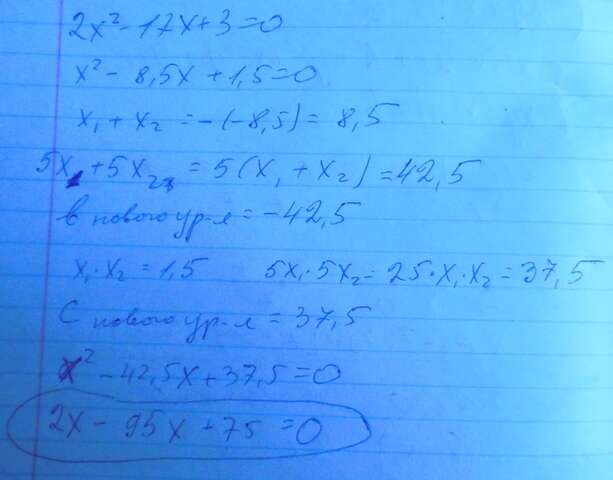 2x² - 17x + 3 = 0
x² - 8,5x + 1,5 = 0
x₁ + x₂ = -(-8,5) = 8,5
5x₁ + 5x₂ = 5(x₁ + x₂) = 42,5
b нового ур-я = -42,5
x₁·x₂ = 1,5 5x₁·5x₂ = 25·x₁·x₂ = 37,5
C нового ур-я = 37,5
x² - 42,5x + 37,5 = 0
2x - 95x + 75 = 0